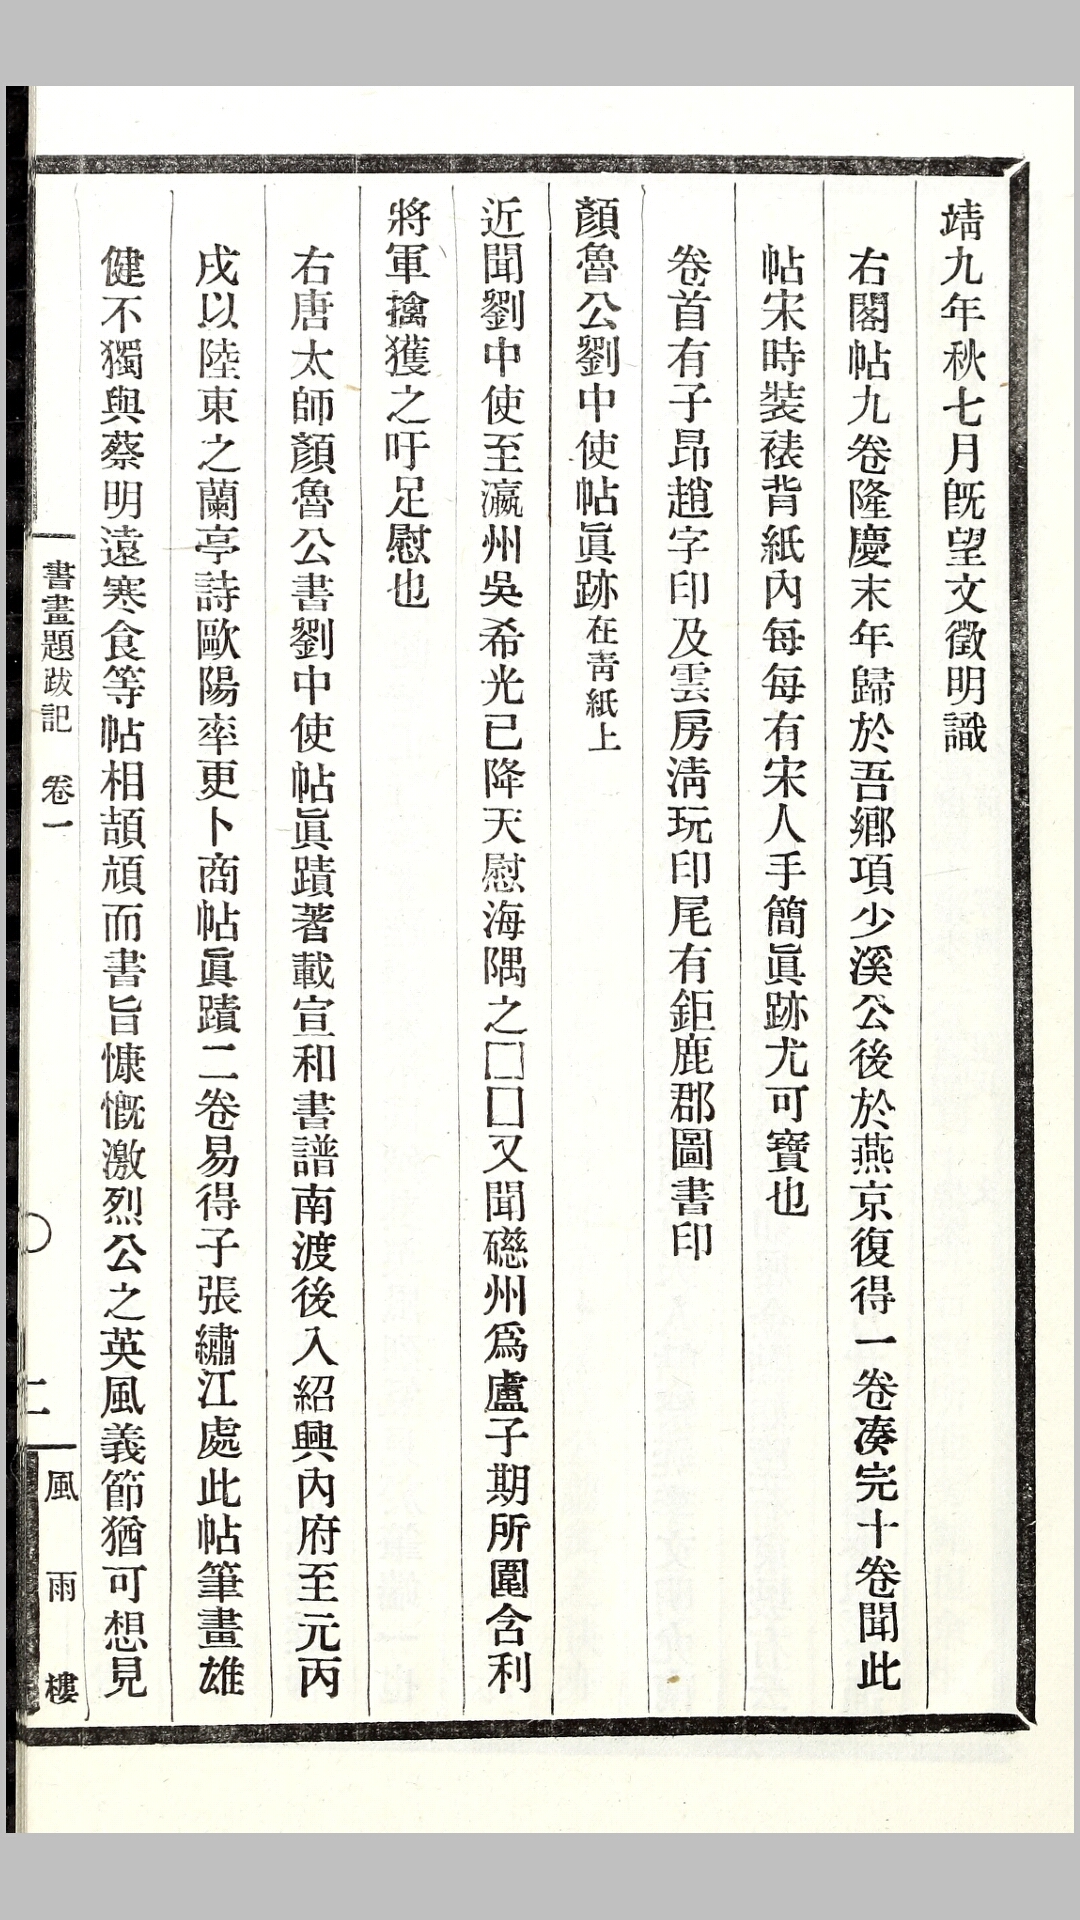 靖九年秋七月旣望文徵明識
右閣帖九卷隆慶末年歸於吾鄕項少溪公後於燕京復得一卷凑完十卷聞此
帖宋時裝裱背紙內每每有宋人手簡眞跡尤可寶也
卷首有子昂趙字印及雲房淸玩印尾有鉅鹿郡圖書印
顏魯公劉中使帖眞跡在靑紙上
近聞劉中使至瀛州吳希光已降天慰海隅之□□又聞礠州爲盧子期所圍含利
將軍擒獲之吁足慰也
右唐太師顏魯公書劉中使帖眞蹟著載宣和書譜南渡後入紹興內府至元丙
戌以陸東之蘭亭詩歐陽率更卜商帖眞蹟二卷易得子張繡江處此帖筆畫雄
健不獨與蔡明遠寒食等帖相頡頏而書旨慷慨激烈公之英風義節猶可想見
書畫題跋記 卷一
二
風雨樓